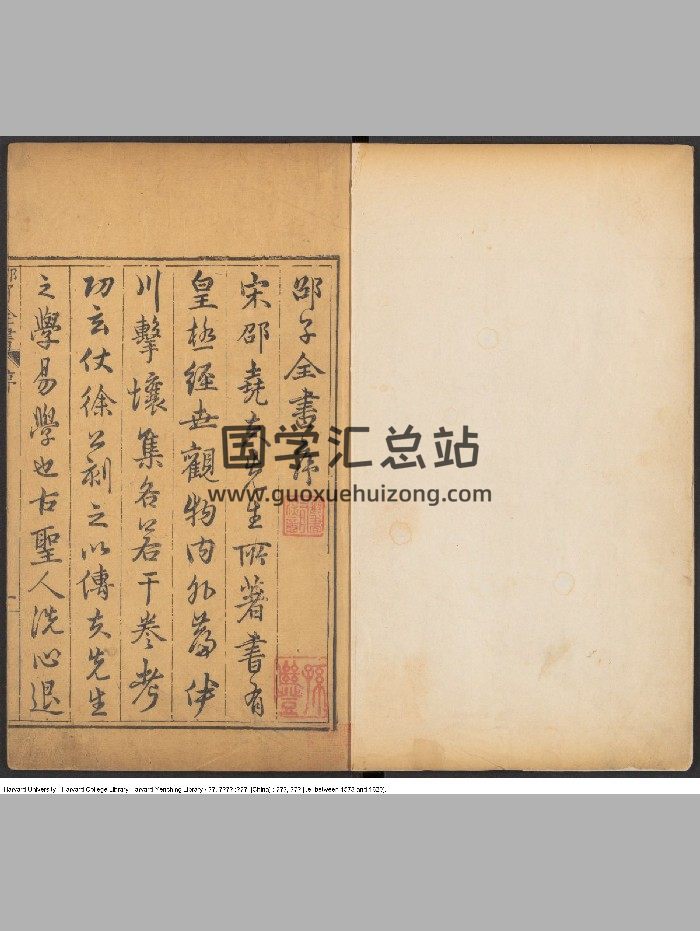 邵子全書序
宋邵堯夫先生所著書有
皇極經世觀物內外篇伊
川擊壤集各若干卷考
功玄仗徐公刻之以傳夫先生
之學易學也古聖人洗心退
国学汇总站
www.guoxuehuizong.com
Harvard University - Harvard College Library Harvard-Yenching Library